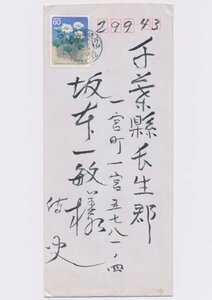 60
29943
千葉縣長生郡
一宮町一宮五七八一ノ四
坂本一敏様